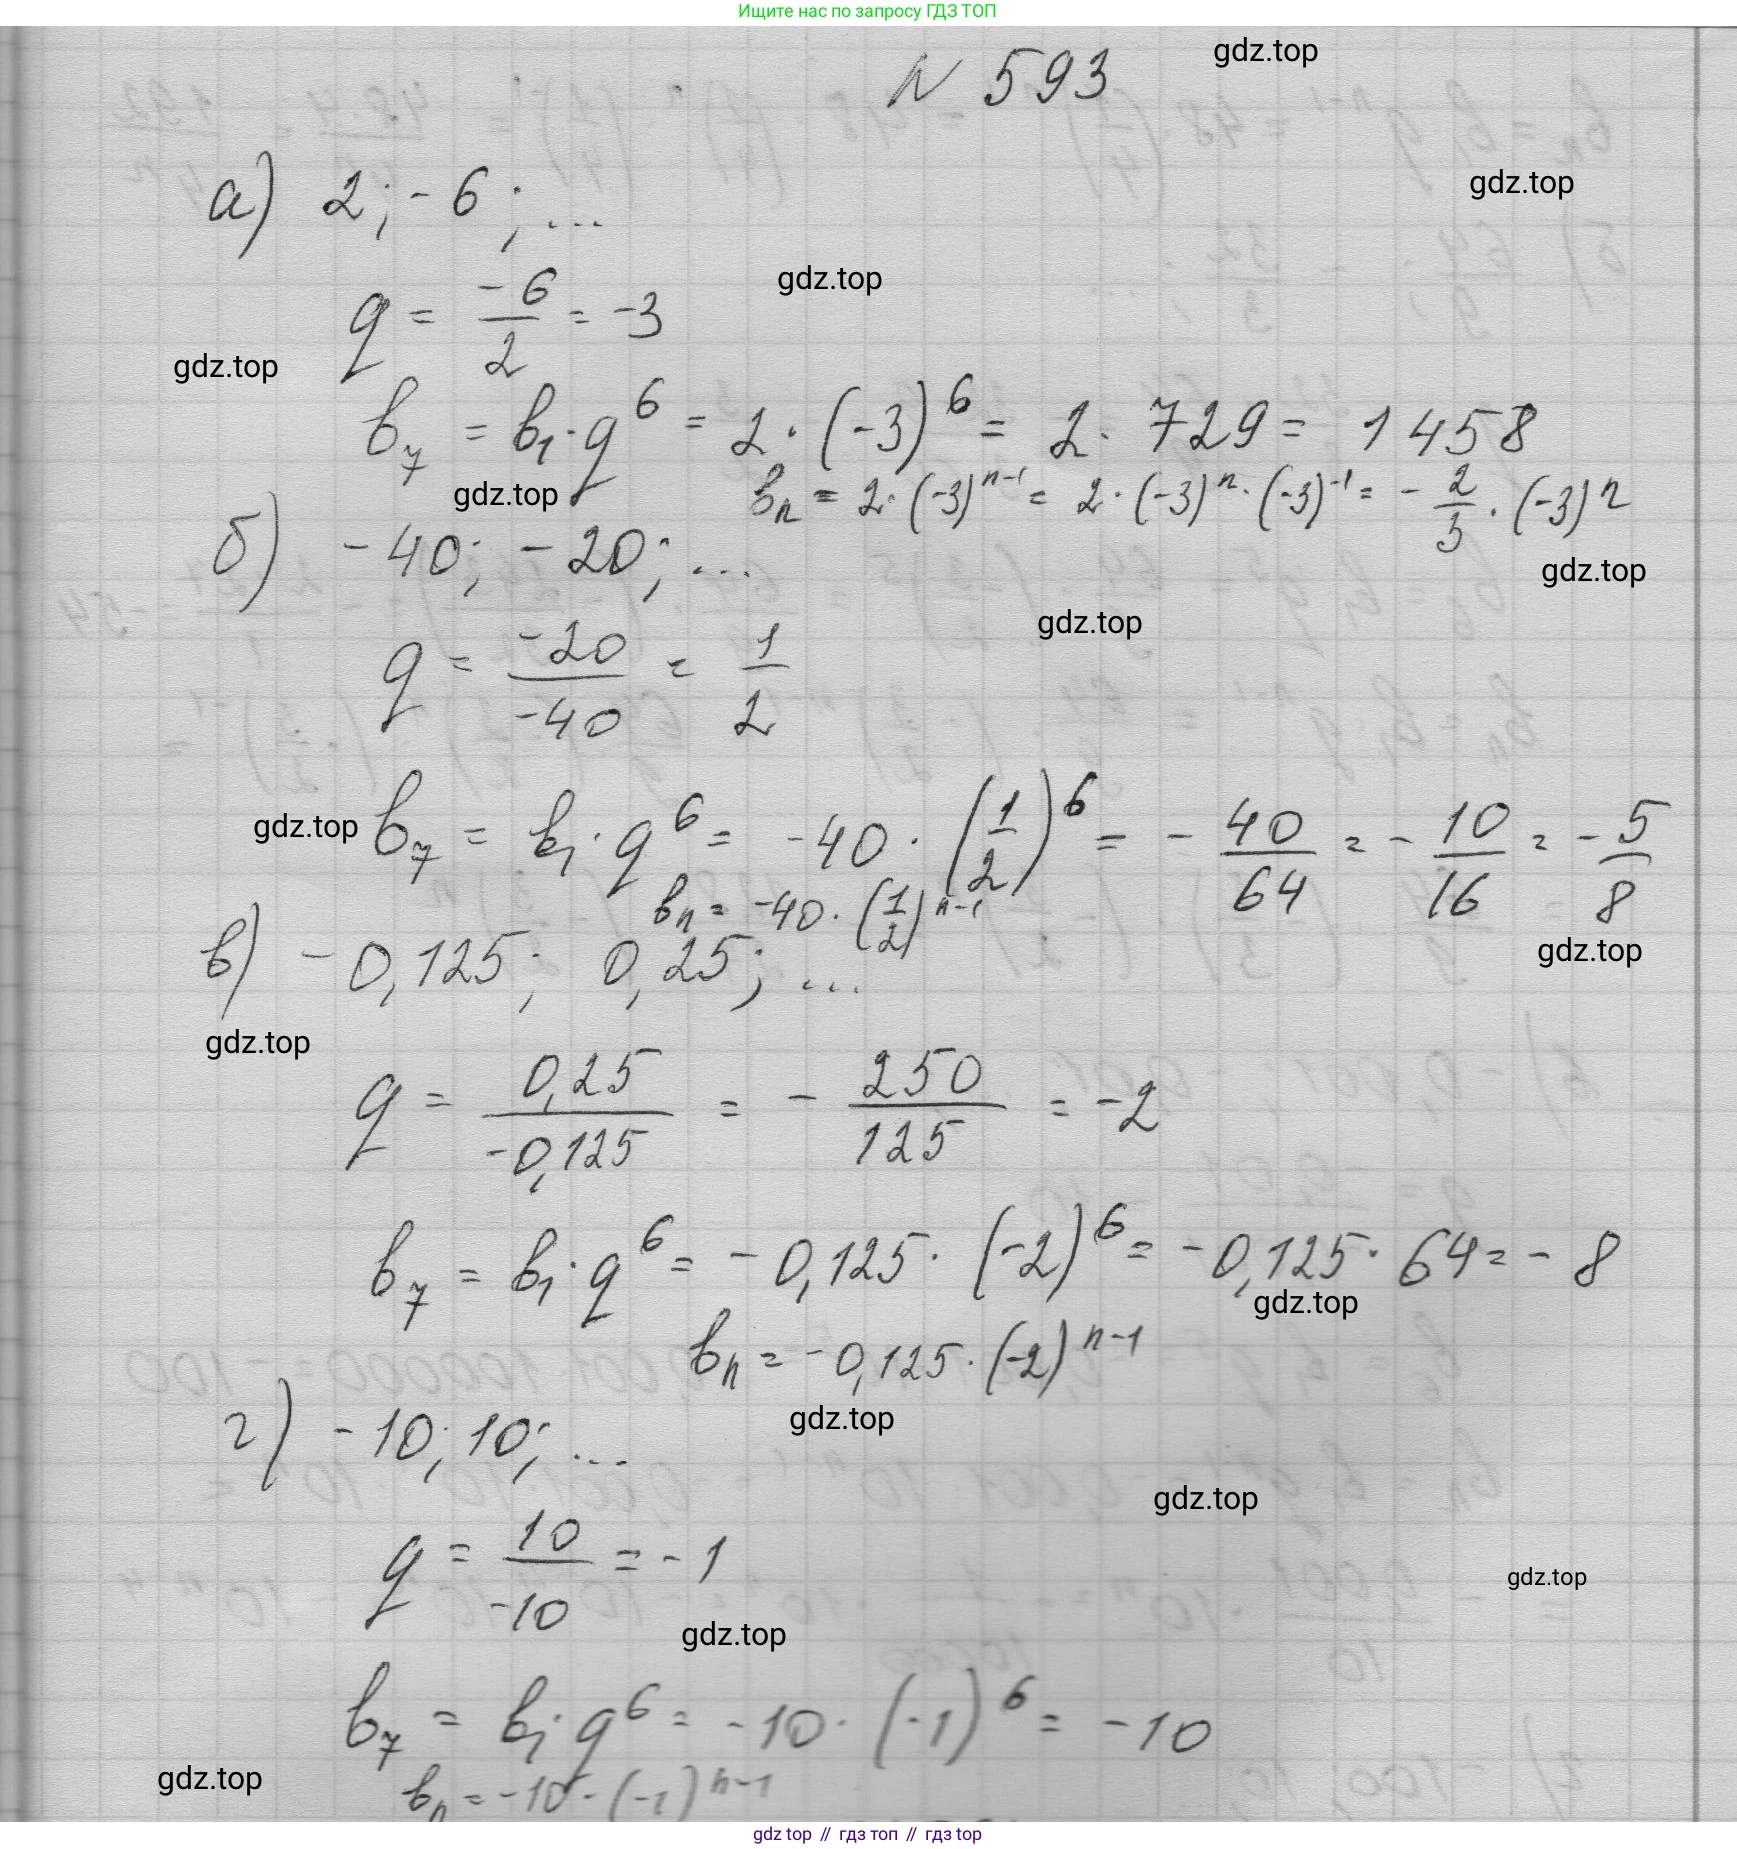 Ищите нас по запросу ГДЗ ТОП
N 593
gdz.top
а) 2; -6; ...
gdz.top
q = -6/2 = -3
gdz.top
gdz.top
b₇ = b₁·q⁶ = 2·(-3)⁶ = 2·729 = 1458
bₙ = 2·(-3)ⁿ⁻¹ = 2·(-3)ⁿ·(-3)⁻¹ = -2/3·(-3)ⁿ
gdz.top
б) -40; -20; ...
gdz.top
gdz.top
q = -20/-40 = 1/2
b₇ = b₁·q⁶ = -40·(1/2)⁶ = -40/64 = -10/16 = -5/8
gdz.top
bₙ = -40·(1/2)ⁿ⁻¹
в) -0,125; 0,25; ...
gdz.top
gdz.top
q = 0,25/-0,125 = -250/125 = -2
b₇ = b₁·q⁶ = -0,125·(-2)⁶ = -0,125·64 = -8
gdz.top
bₙ = -0,125·(-2)ⁿ⁻¹
gdz.top
г) -10; 10; ...
gdz.top
q = 10/-10 = -1
gdz.top
gdz.top
b₇ = b₁·q⁶ = -10·(-1)⁶ = -10
gdz.top
bₙ = -10·(-1)ⁿ⁻¹
gdz top // гдз топ // гдз top